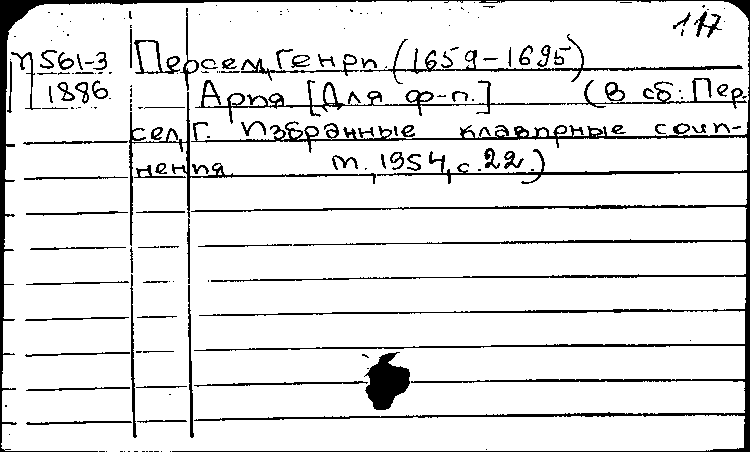 117
М 561-3 Персел, Генри (1659-1695)
1886 Ария [Для ф-п.] (В сб: Пер
сел, Г. Избранные клавирные сочи-
нения. М., 1954, с. 22.)